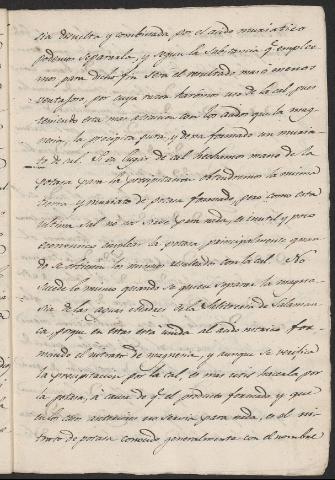 sia disuelta y combinada por el acido muriatico
podemos separarla, y segun la substancia q.e emplee
mos para dicho fin sera el resultado mas ó menos
ventajoso, por cuya razon haremos uso de la cal, pues
teniendo esta mas atraccion con los acidos que la mag
nesia, la precipita pura, y dexa formado un muria
to de cal. Si en lugar de cal hechamos mano de la
potasa para la precipitacion obtendremos la misma
tierra y muriato de potasa formado, pero como esta
ultima sal no nos sirve para nada, es inutil y poco
economico emplear la potasa principalmente quan
do se obtienen los mismos resultados con la cal. No
sucede lo mismo quando se quiera separar la magne
sia de las aguas madres de la Salitreria de Salaman
ca porque en estas esta unida al acido nitrico for
mando el nitrato de magnesia, y aunque se verifica
la precipitacion por la cal, es mas util hacerla por
la potasa, á causa de q.e el producto formado y que
en los anteriores no servia para nada, es el ni
trato de potasa conocido generalmente con el nombre